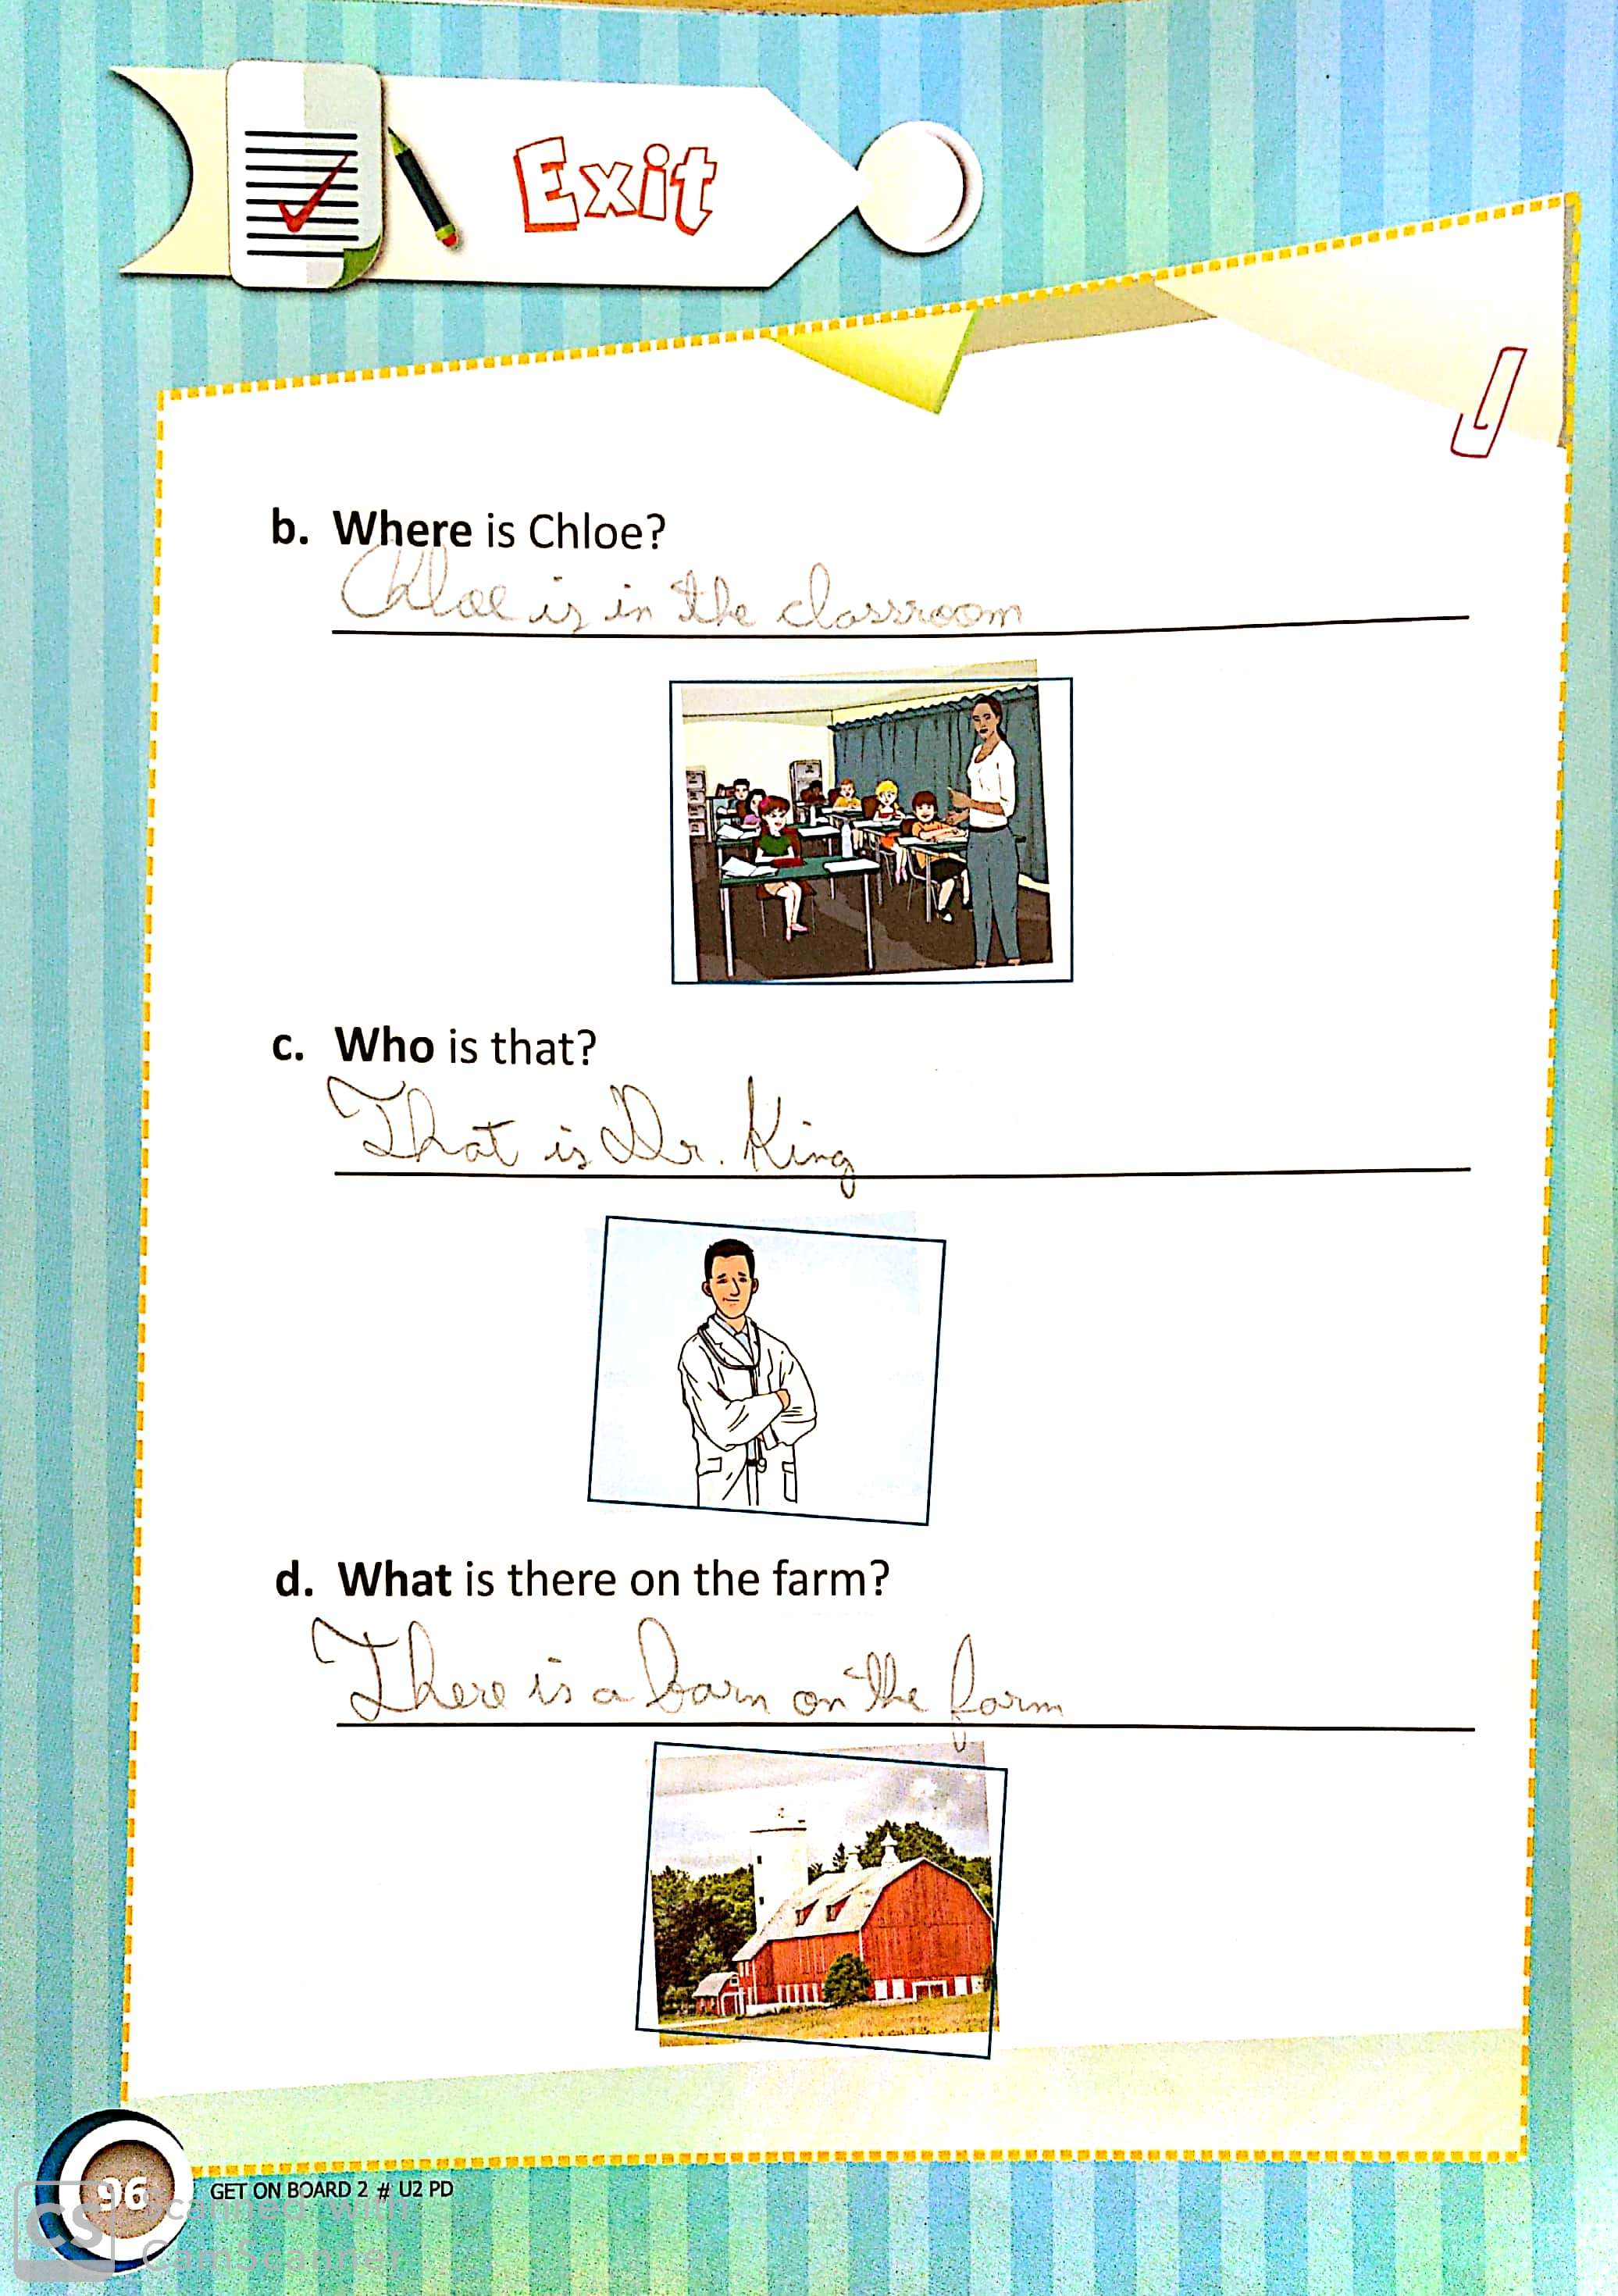 Exit
b. Where is Chloe?
Chloe is in the classroom
c. Who is that?
That is Dr. King
d. What is there on the farm?
There is a barn on the farm
96
GET ON BOARD 2 # U2 PD
CS Scanned with
CamScanner